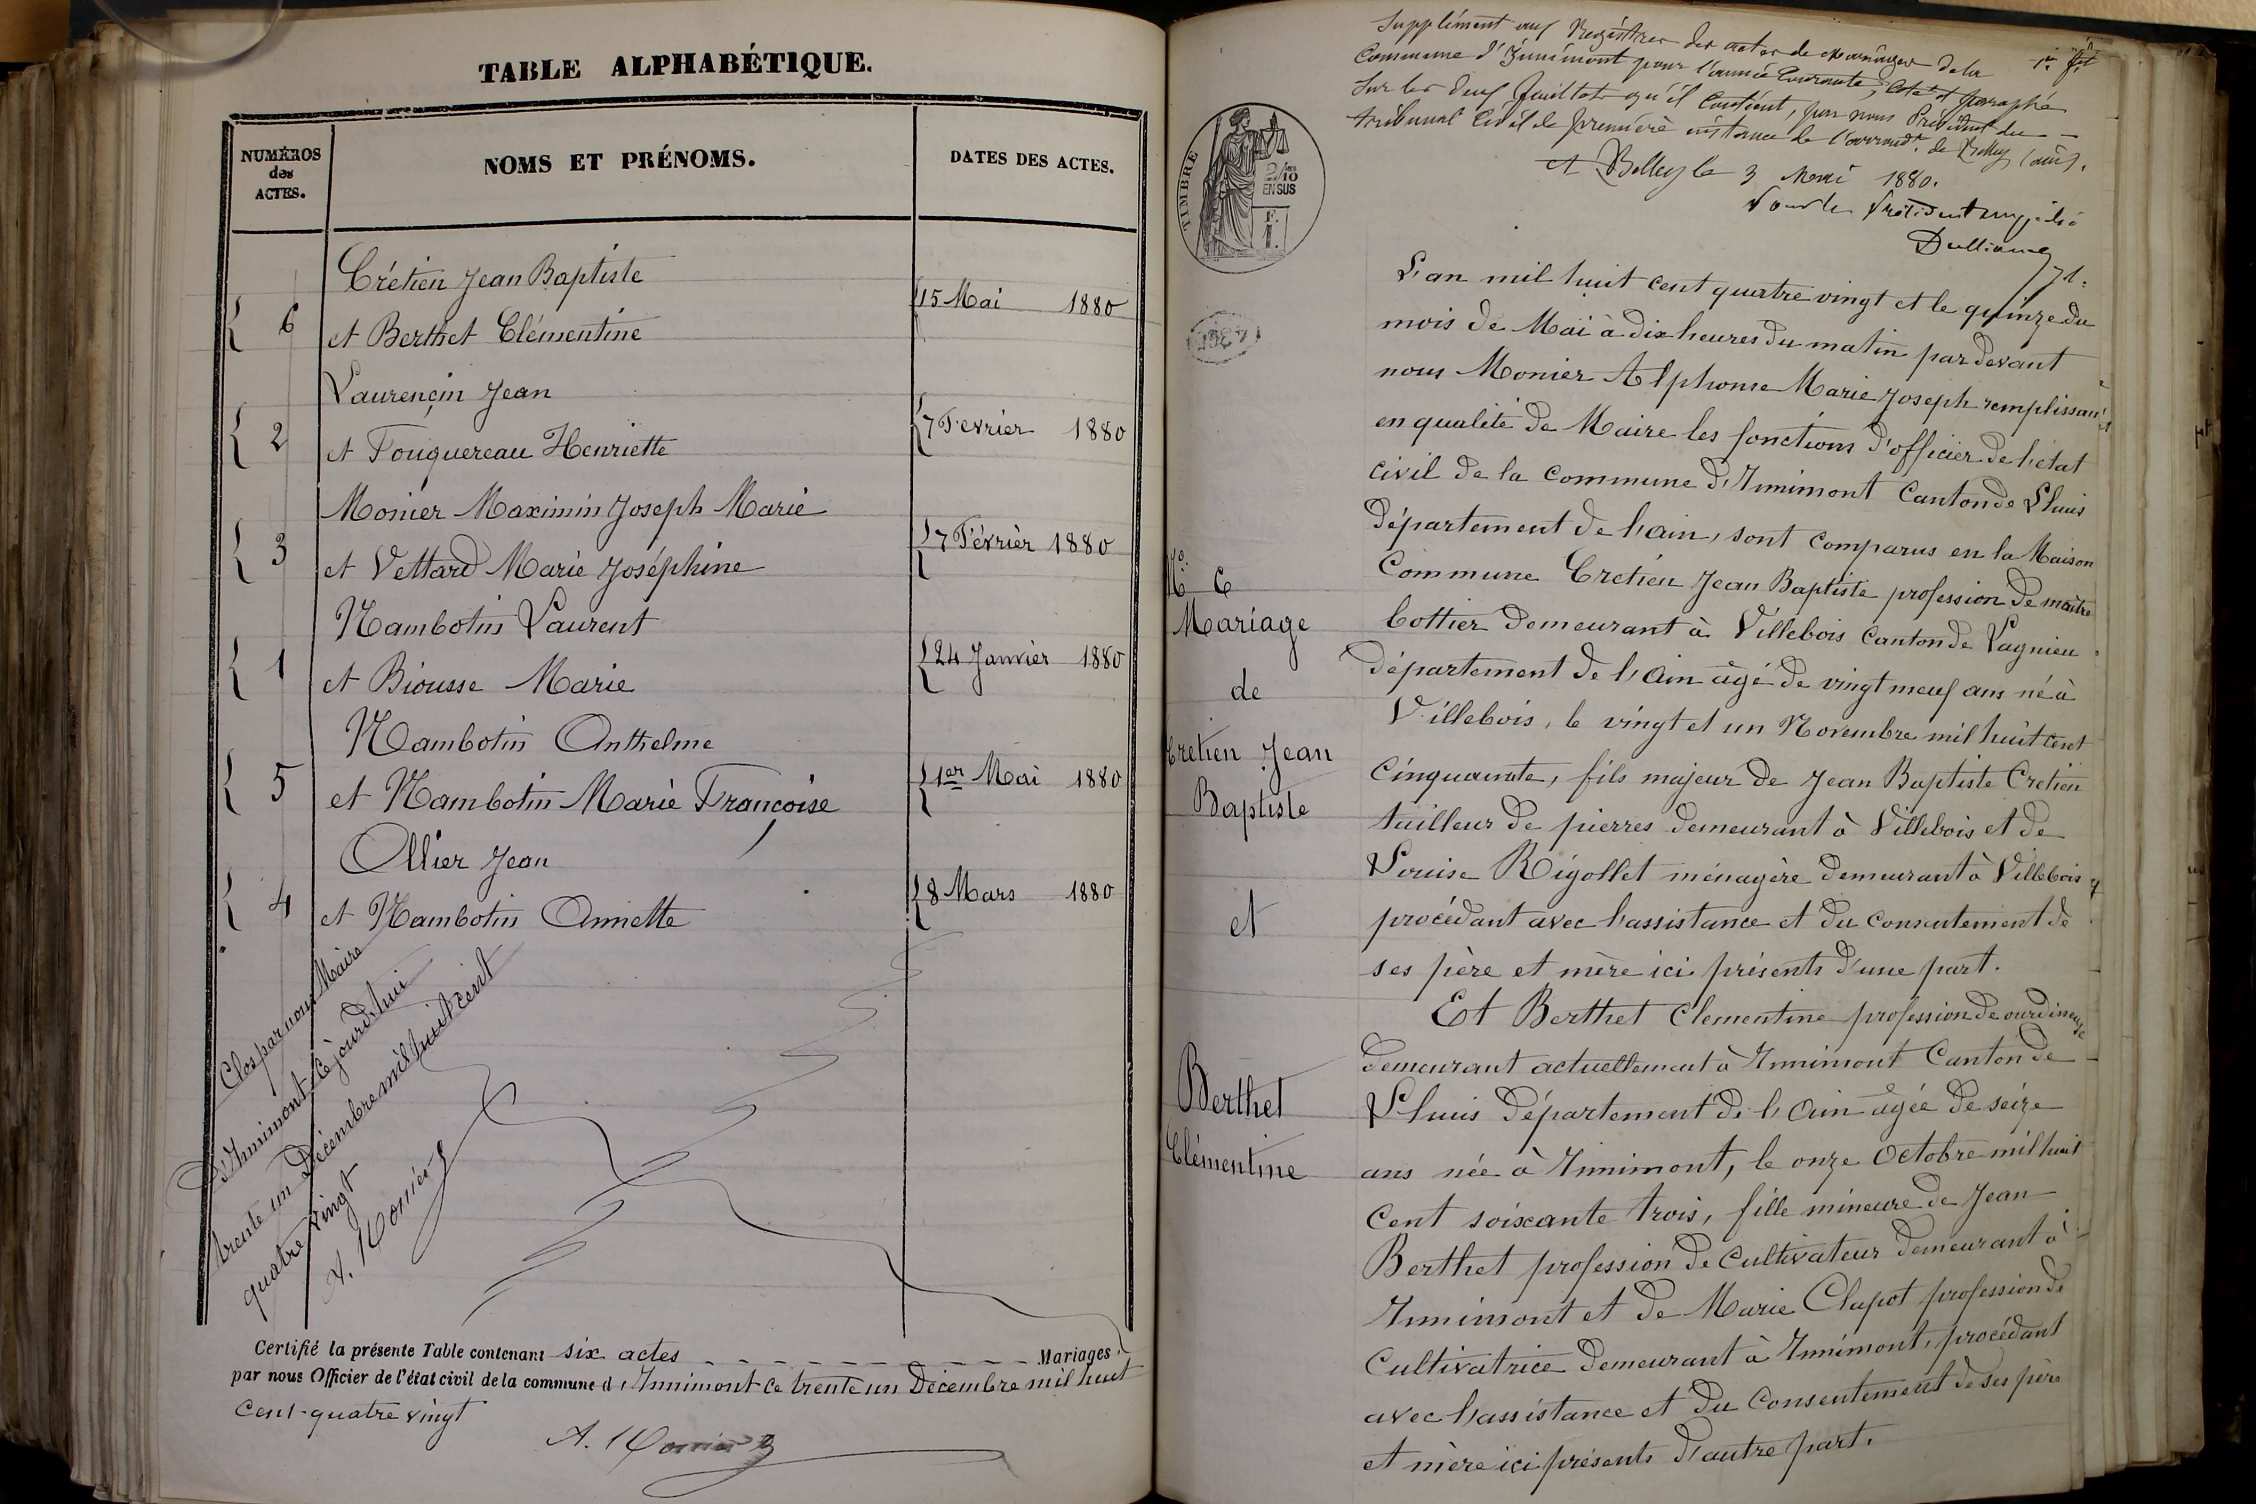 TABLE ALPHABÉTIQUE.
NUMÉROS des ACTES.
NOMS ET PRÉNOMS.
DATES DES ACTES.
Crétien Jean Baptiste
6
et Berthet Clémentine
15 Mai 1880
Laurençin Jean
2
et Fouquereau Henriette
7 Fevrier 1880
Monier Maximin Joseph Marie
3
et Vettard Marie Joséphine
7 Février 1880
Nambotin Laurent
1
et Biousse Marie
24 Janvier 1880
Nambotin Anthelme
5
et Nambotin Marie Françoise
1er Mai 1880
Ollier Jean
4
et Nambotin Annette
8 Mars 1880
Clos par nous Maire
d'Innimont ce jourd'hui
trente un Décembre mil huit cent
quatre vingt
A. Monier
Certifié la présente Table contenant six actes Mariages
par nous Officier de l'état civil de la commune d'Innimont ce trente un Décembre mil huit
cent quatre vingt
A. Monier
Supplément aux Registres des actes de mariages de la
1er ft
commune d'Innimont pour l'année courante, coté et paraphé
sur les deux feuillets qu'il contient, par nous Président du
tribunal civil de première instance de l'arrondt. de Belley (ain).
A Belley le 3 Mai 1880.
Pour le Président empêché
TIMBRE
2/10
EN SUS
L'an mil huit cent quatre vingt et le quinze du
mois de Mai à dix heures du matin par devant
nous Monier Alphonse Marie Joseph remplissant
en qualité de Maire les fonctions d'officier de l'état
civil de la commune d'Innimont Canton de Lhuis
département de l'ain, sont comparus en la Maison
Commune Cretien Jean Baptiste profession de maître
bottier demeurant à Villebois Canton de Lagnieu
département de l'Ain âgé de vingt neuf ans né à
Villebois, le vingt et un Novembre mil huit cent
cinquante, fils majeur de Jean Baptiste Cretien
tailleur de pierres demeurant à Villebois et de
Louise Rigollet ménagère demeurant à Villebois
procédant avec l'assistance et du consentement de
ses père et mère ici présents d'une part.
Et Berthet Clementine profession de ourdineuse
demeurant actuellement à Innimont Canton de
Lhuis Département de l'Ain âgée de seize
ans née à Innimont, le onze Octobre mil huit
cent soixante trois, fille mineure de Jean
Berthet profession de cultivateur demeurant à
Innimont et de Marie Clapot profession de
cultivatrice demeurant à Innimont, procédant
avec l'assistance et du consentement de ses père
et mère ici présents d'autre part.
No. 6
Mariage
de
Cretien Jean
Baptiste
et
Berthet
Clémentine